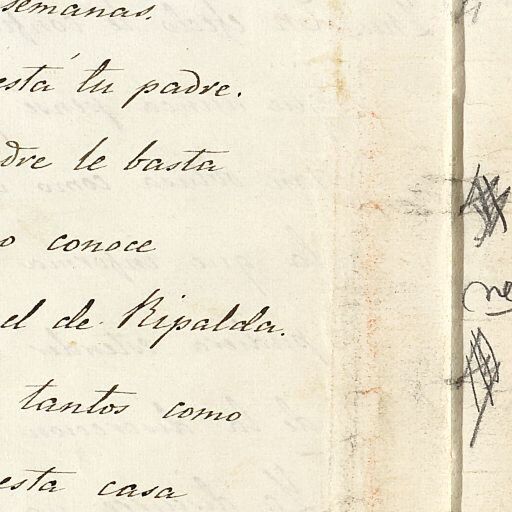 semanas.
está tu padre.
dre le basta
o conoce
el de Ripalda.
tantos como
esta casa